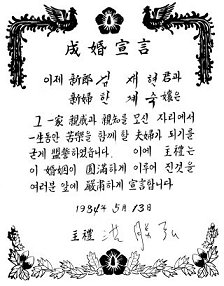 成婚宣言
이제 新郎 김 세현君과
新婦 한 계숙孃은
그 一家 親戚과 親知를 모신 자리에서
一生동안 苦樂을 함께 할 夫婦가 되기를
굳게 盟誓하였습니다. 이에 主禮는
이 婚姻이 圓滿하게 이루어 진것을
여러분 앞에 嚴肅하게 宣言합니다
1984年 5月 13日
主禮